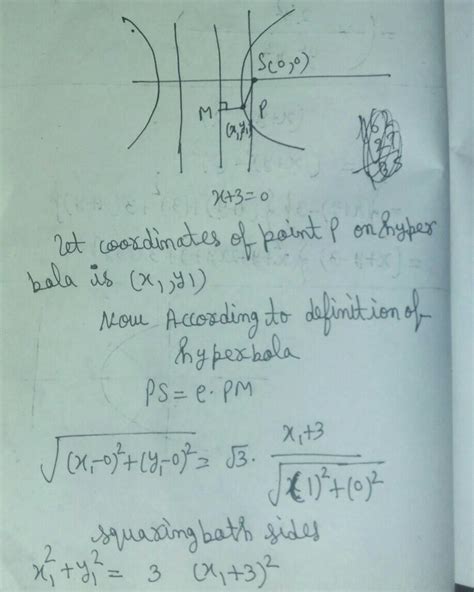 S(0,0)
M P
(x,y)
x+3=0
Let coordinates of point P on hyper
bola is (x₁,y1)
Now According to definition of
hyperbola
PS = e. PM
√(x₁-0)²+(y₁-0)² = √3 . x₁+3 / √(1)²+(0)²
squaring both sides
x₁²+y₁² = 3 (x₁+3)²